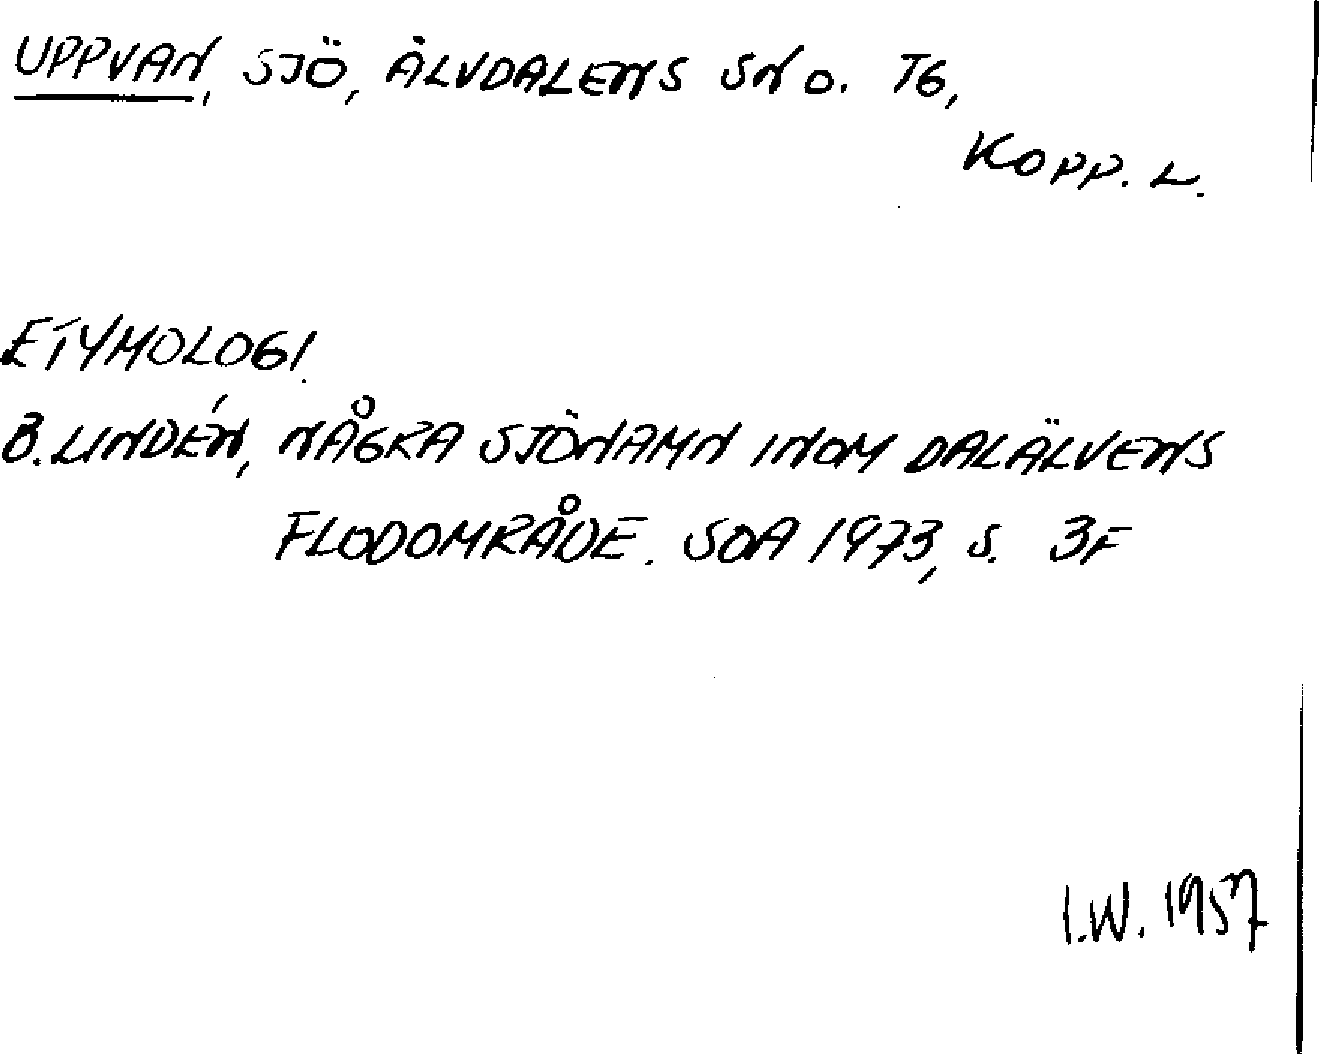 UPPVAN, SJÖ, ÄLVDALENS SN O. TG,
KOPP. L.
ETYMOLOGI.
B. LINDÉN, NÅGRA SJÖNAMN INOM DALÄLVENS
FLODOMRÅDE. SOÅ 1973, S. 3F
I.W. 1957